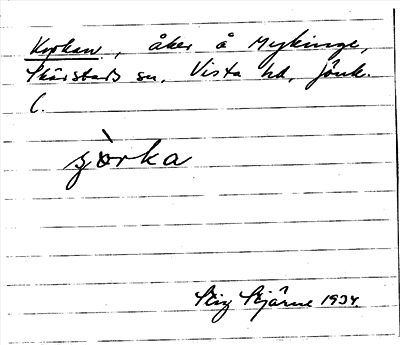 Kyrkan, åker å Myckinge,
Skärstads sn, Vista hd, Jönk.
l.
sjörka
Stig Stjärne 1934